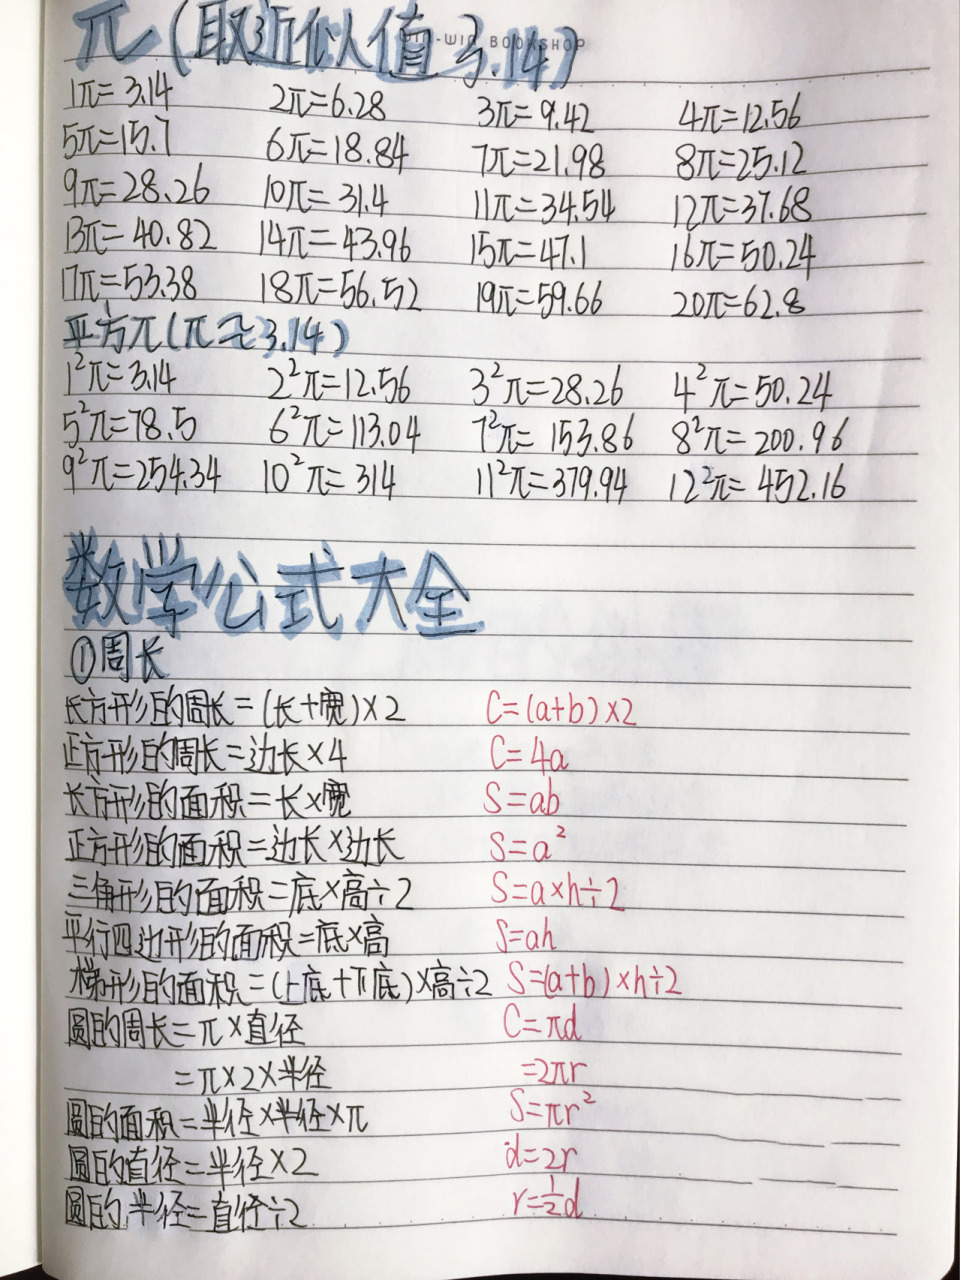 WIN-WIN BOOKSHOP
π(取近似值3.14)
1π=3.14 2π=6.28 3π=9.42 4π=12.56
5π=15.7 6π=18.84 7π=21.98 8π=25.12
9π=28.26 10π=31.4 11π=34.54 12π=37.68
13π=40.82 14π=43.96 15π=47.1 16π=50.24
17π=53.38 18π=56.52 19π=59.66 20π=62.8
平方π(π≈3.14)
1²π=3.14 2²π=12.56 3²π=28.26 4²π=50.24
5²π=78.5 6²π=113.04 7²π=153.86 8²π=200.96
9²π=254.34 10²π=314 11²π=379.94 12²π=452.16
数学公式大全
①周长
长方形的周长=(长+宽)×2 C=(a+b)×2
正方形的周长=边长×4 C=4a
长方形的面积=长×宽 S=ab
正方形的面积=边长×边长 S=a²
三角形的面积=底×高÷2 S=a×h÷2
平行四边形的面积=底×高 S=ah
梯形的面积=(上底+下底)×高÷2 S=(a+b)×h÷2
圆的周长=π×直径 C=πd
=π×2×半径 =2πr
圆的面积=半径×半径×π S=πr²
圆的直径=半径×2 d=2r
圆的半径=直径÷2 r=½d